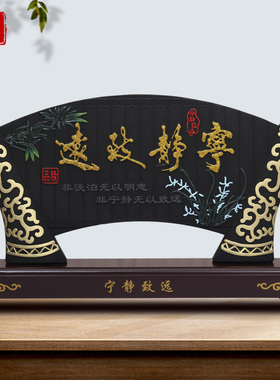 寧静致遠
非淡泊无以明志
非宁静无以致远
宁静致远